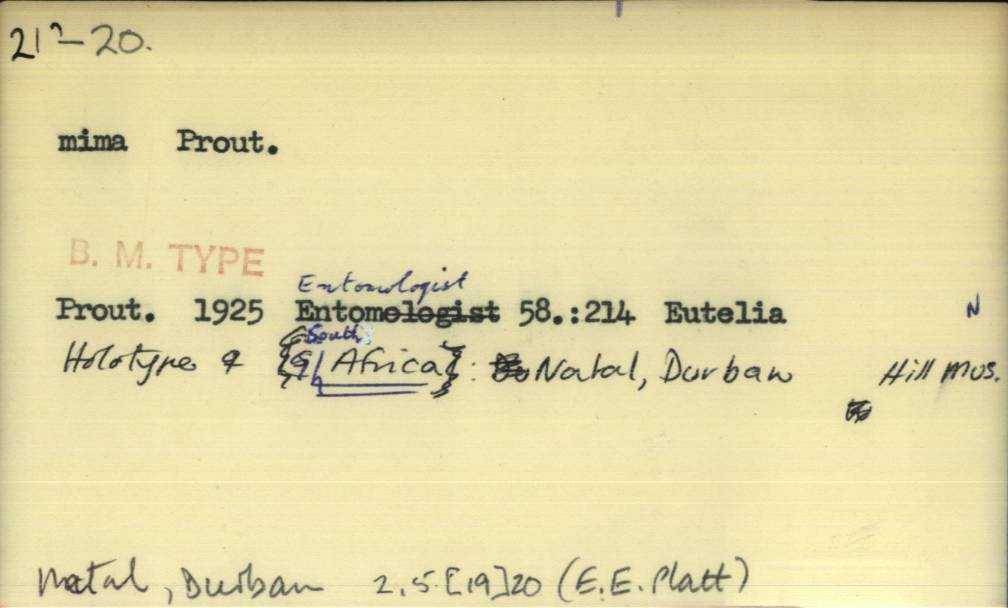 21²-20.
mima Prout.
B. M. TYPE
Entomologist
Prout. 1925 Entomologist 58.:214 Eutelia N
South
Holotype ♀ {Africa}: Natal, Durban Hill Mus.
Natal, Durban 2.5.[19]20 (E.E. Platt)